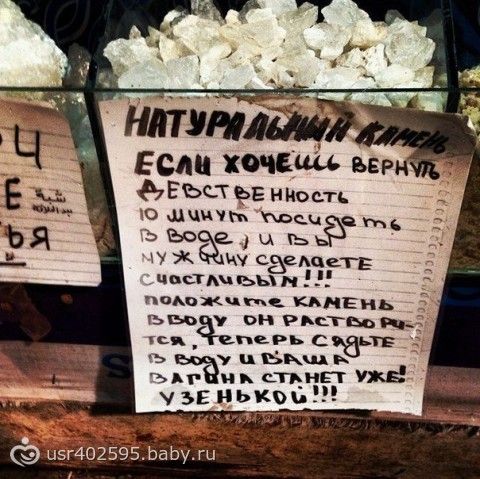 НАТУРАЛЬНИЙ КАМЕНЬ
ЕСЛИ ХОЧЕШЬ ВЕРНУТЬ
ДЕВСТВЕННОСТЬ
10 МИНУТ ПОСИДЕТЬ
В ВОДЕ, И ВЫ
МУЖЧИНУ СДЕЛАЕТЕ
СЧАСТЛИВЫМ!!!
ПОЛОЖИТЕ КАМЕНЬ
В ВОДУ ОН РАСТВОРИ-
ТСЯ, ТЕПЕРЬ СЯДЬТЕ
В ВОДУ И ВАША
ВАГИНА СТАНЕТ УЖЕ!
УЗЕНЬКОЙ!!!
Ч
Е
شبة
ЬЯ
usr402595.baby.ru